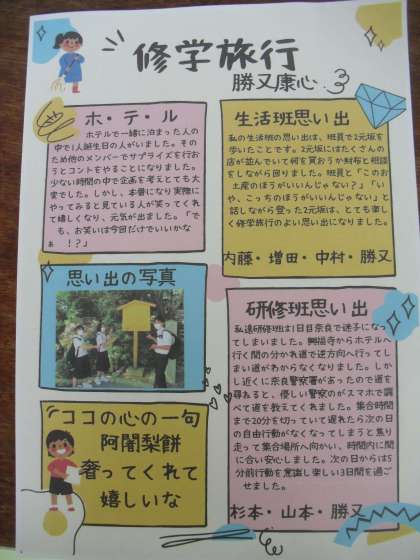 修学旅行
勝又康心
ホ・テ・ル
ホテルで一緒に泊まった人の
中で1人誕生日の人がいました。その
ため他のメンバーでサプライズを行お
うとコントをやることになりました。
少ない時間の中で企画を考えとても大
変でした。しかし、本番になり実際に
やってみると見ている人が笑ってくれ
て嬉しくなり、元気が出ました。「で
も、お笑いは今回だけでいいかな
ぁ!?」
生活班思い出
私の生活班の思い出は、班員で2元坂を
歩いたことです。2元坂にはたくさんの
店が並んでいて何を買おうか財布と相談
をしながら回りました。班員と「このお
土産のほうがいいんじゃない?」「い
や、こっちのほうがいいんじゃない」と
話しながら登った2元坂は、とても楽し
く修学旅行のよい思い出になりました。
内藤・増田・中村・勝又
思い出の写真
研修班思い出
私達研修班は1日目奈良で迷子になっ
てしまいました。興福寺からホテルへ
行く間の分かれ道で逆方向へ行ってし
まい道がわからなくなりました。しか
し近くに奈良警察署があったので道を
尋ねると、優しい警察のがスマホで調
べて道を教えてくれました。集合時間
まで20分を切っていて遅れたら次の日
の自由行動がなくなってしまうと焦り
走って集合場所へ向かい、時間内に間
に合い安心しました。次の日からは5
分前行動を意識し楽しい3日間を過ご
せました。
杉本・山本・勝又
ココの心の一句
阿闍梨餅
奢ってくれて
嬉しいな